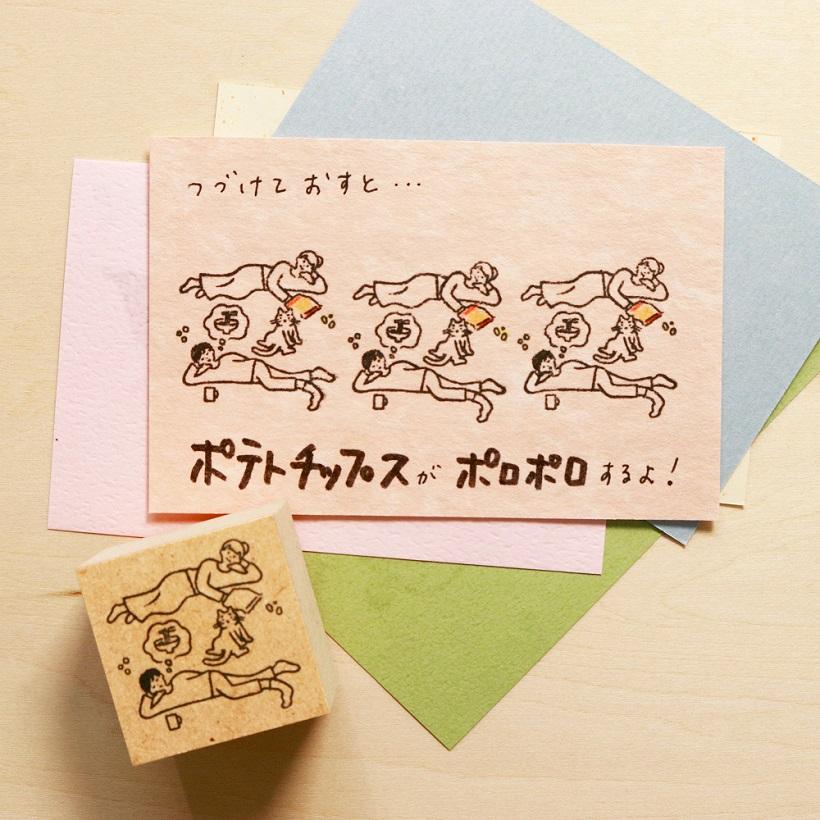 つづけて おすと…
ポテトチップスが ポロポロするよ!